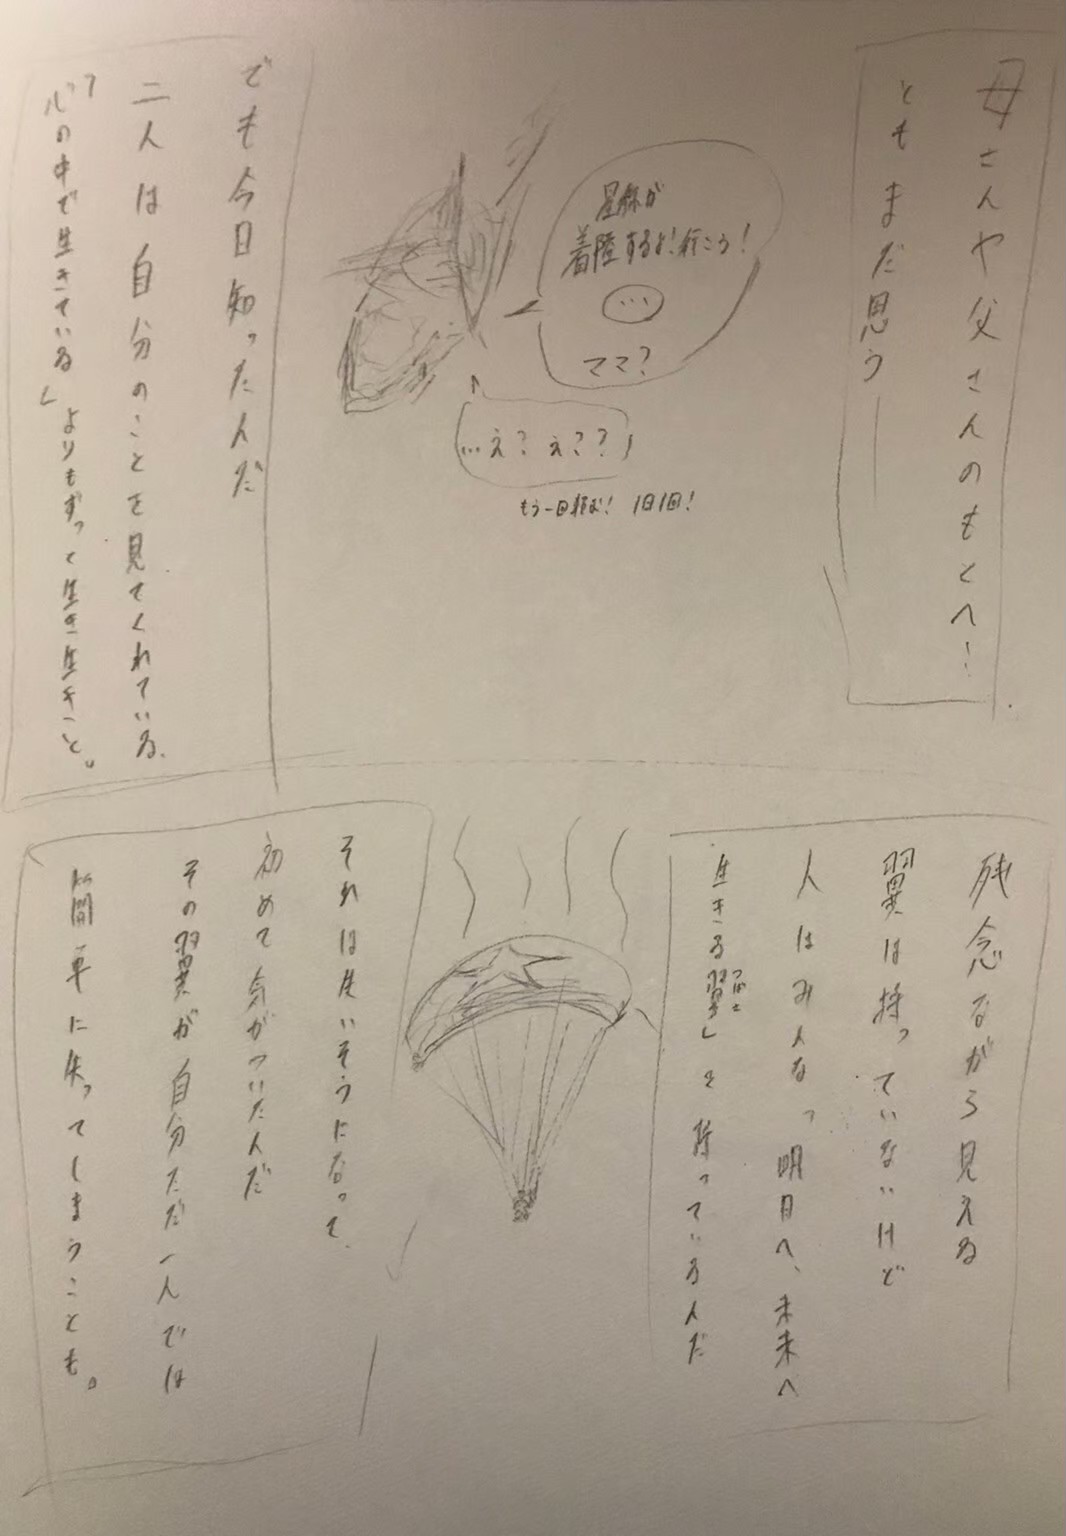 母さんや父さんのもとへ!
ともまだ思う——
星船が
着陸するよ!行こう!
…
ママ?
…え?え??
もう一回
1日1回!
でも今日知った人だ
二人は自分のことを見てくれている。
「心の中で生きている」よりもずっと生き生きと。
残念ながら見える
翼は持っていないけど
人はみんな「明日へ、未来へ
生きる翼」を持っている人だ
つばさ
それは失いそうになって、
初めて気がついた人だ
その翼が自分ただ一人では
簡単に失ってしまうことも。